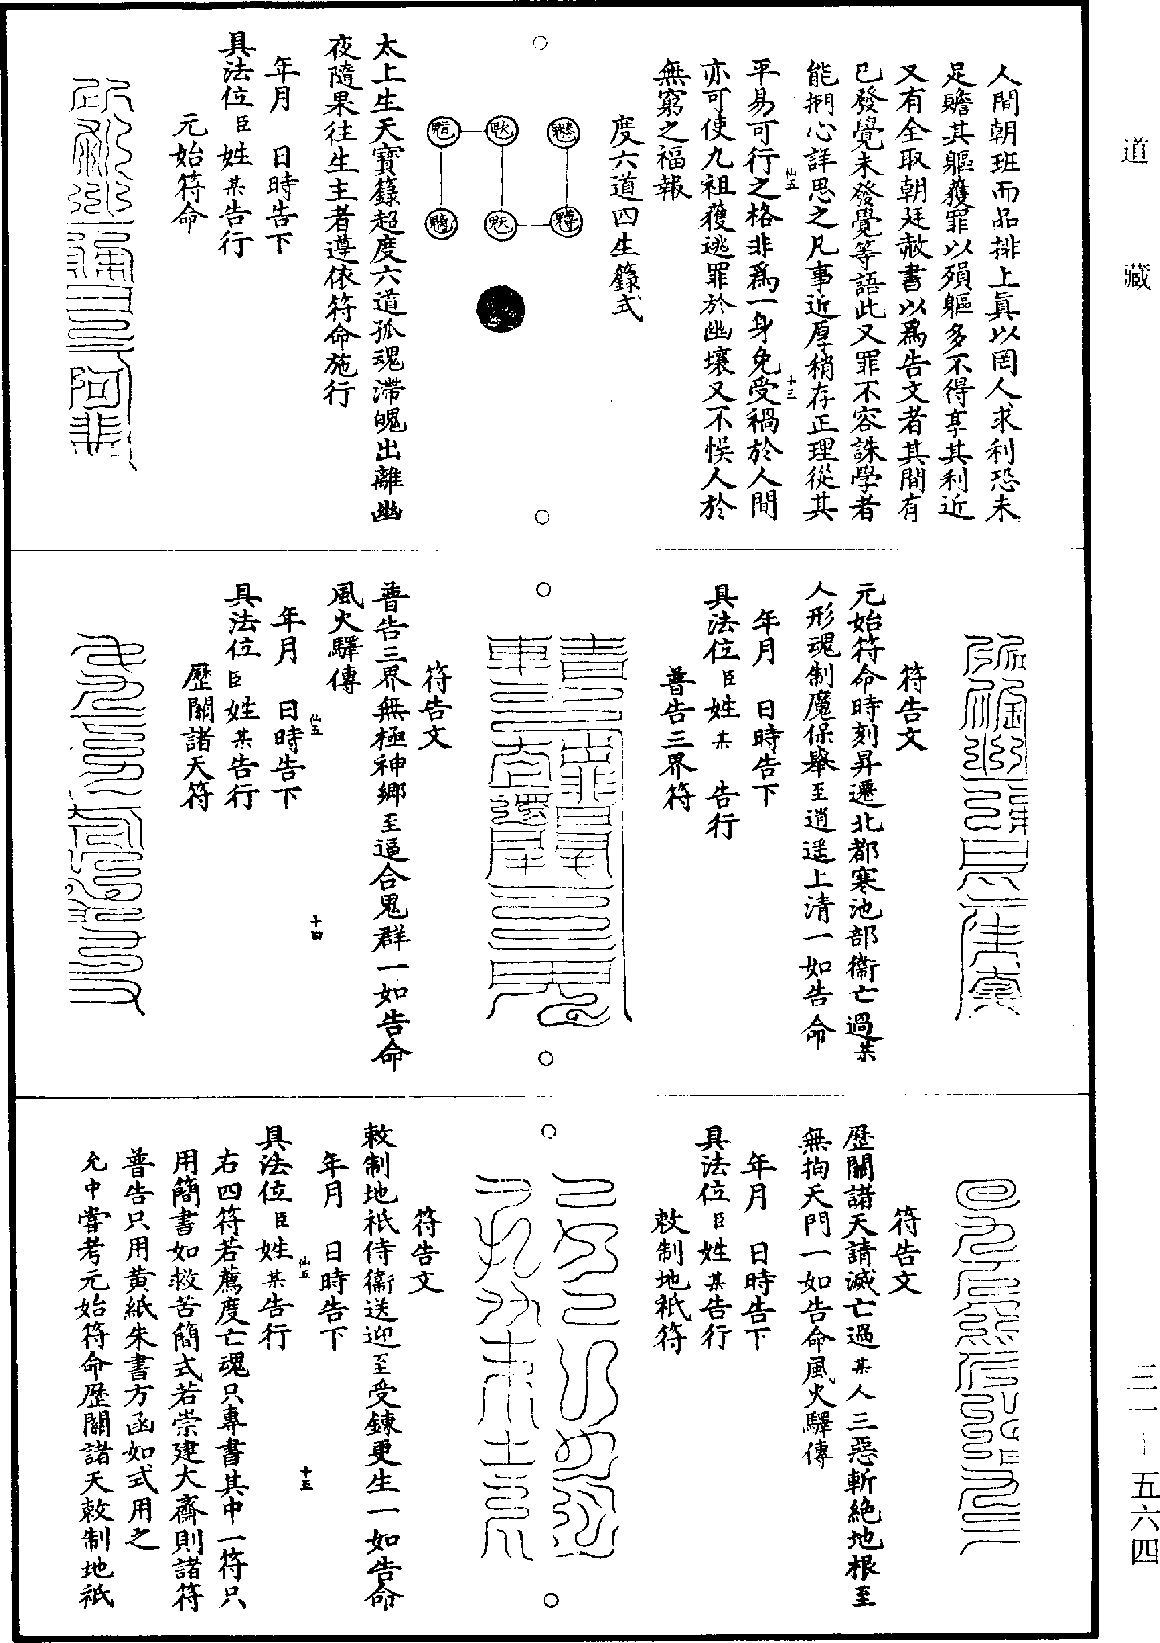 道藏
人間朝班而品排上眞以罔人求利恐未
足贍其軀獲罪以殞軀多不得享其利近
又有全取朝廷赦書以爲告文者其間有
已發覺未發覺等語此又罪不容誅學者
能捫心詳思之凡事近厚稍存正理從其
仙五 十三
平易可行之格非爲一身免受禍於人間
亦可使九祖獲逃罪於幽壤又不悞人於
無窮之福報
度六道四生籙式
太上生天寶籙超度六道孤魂滯魄出離幽
夜隨果往生主者遵依符命施行
年月 日時告下
具法位臣姓某告行
元始符命
符告文
元始符命時刻昇遷北都寒池部衞亡過某
人形魂制魔保舉至逍遥上清一如告命
年月 日時告下
具法位臣姓某 告行
普告三界符
符告文
普告三界無極神鄉至逼合鬼群一如告命
風火驛傳
仙五 十四
年月 日時告下
具法位臣姓某告行
歷關諸天符
符告文
歷關諸天請滅亡過某人三惡斬絶地根至
無拘天門一如告命風火驛傳
年月 日時告下
具法位臣姓某告行
敕制地祇符
符告文
敕制地祇侍衞送迎至受鍊更生一如告命
年月 日時告下
仙五 十五
具法位臣姓某告行
右四符若薦度亡魂只專書其中一符只
用簡書如救苦簡式若崇建大齋則諸符
普告只用黄紙朱書方函如式用之
允中嘗考元始符命歷關諸天敕制地祇
三一—五六四